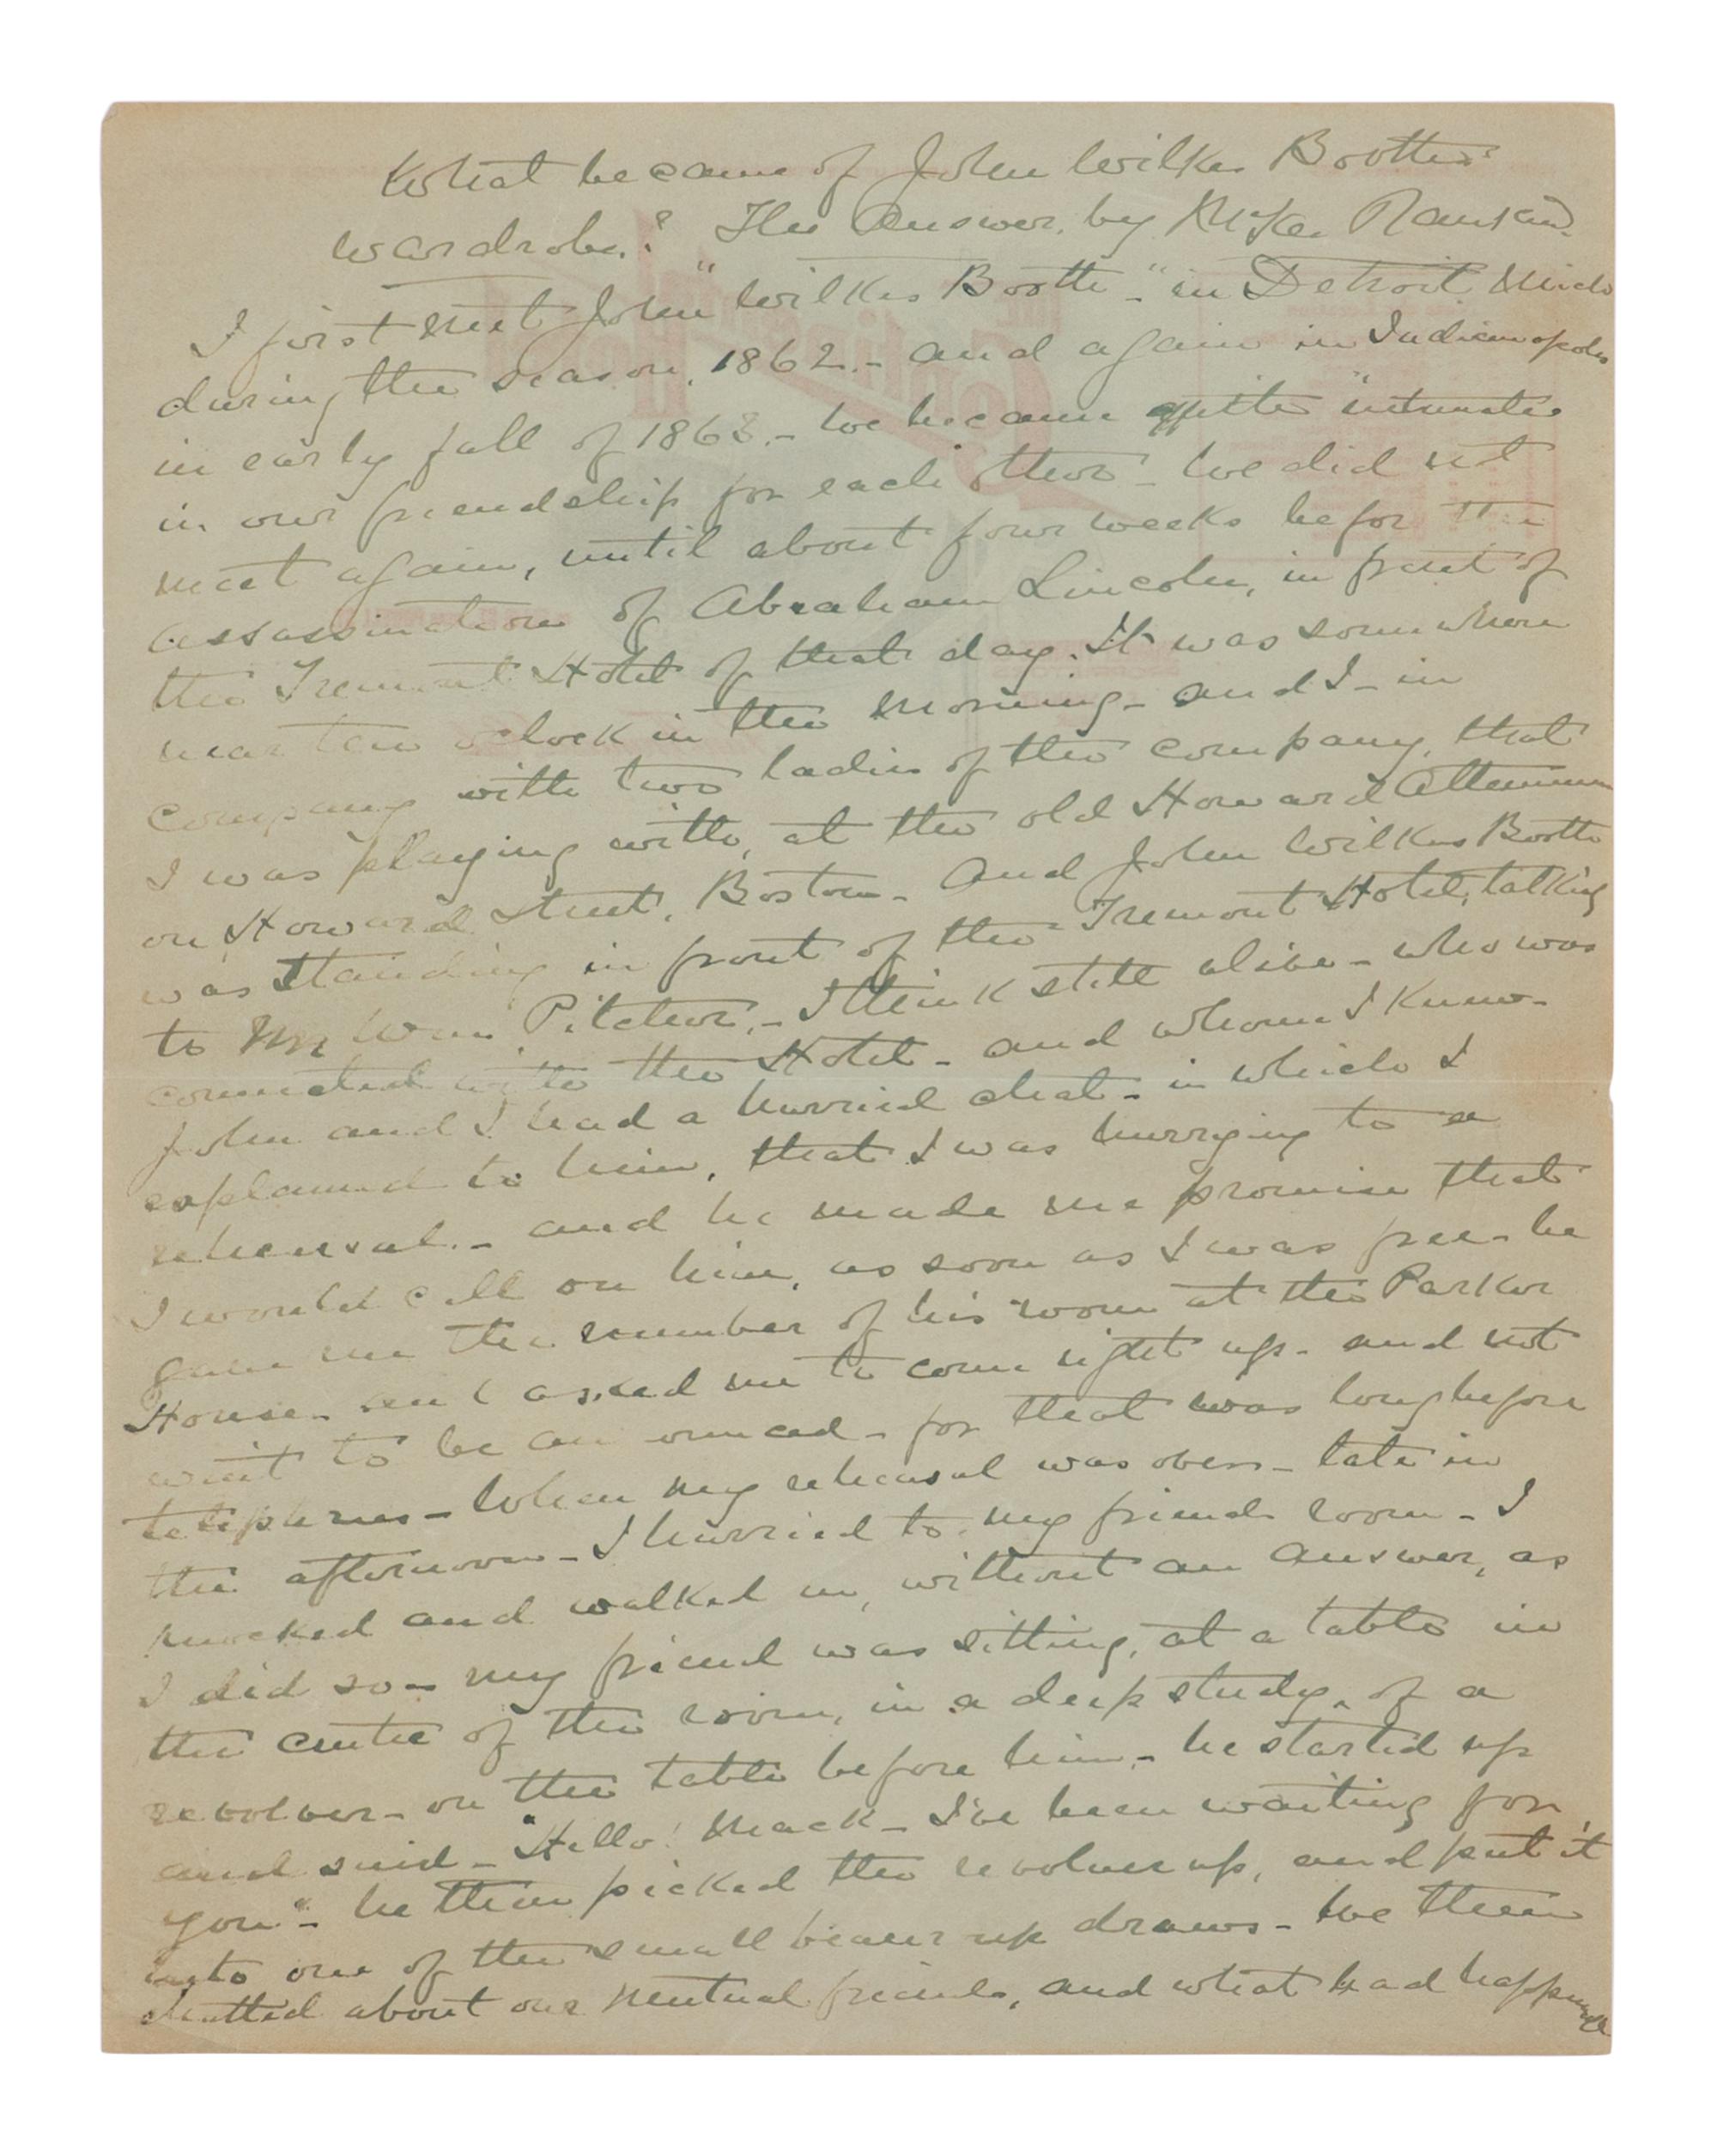 What became of John Wilkes Booths
wardrobe.? The Answer, by McKee Rankin.
I first met John "Wilkes Booth" in Detroit Mich
during the season, 1862 - and again in Indianapolis
in early fall of 1863. - We became quite intimate
in our friendship for each other - We did not
meet again, until about four weeks befor the
assassination of Abraham Lincoln, in front of
the Tremont Hotel of that day. It was somewhere
near ten oclock in the morning - and I - in
company with two ladies of the company, that
I was playing with, at the old Howard Atheneum
on Howard Street, Boston - And John Wilkes Booth
was standing in front of the Tremont Hotel, talking
to Mr Wm Pitcher, - I think still alive - who was
connected with the Hotel - and whom I knew -
John and I had a hurried chat - in which I
explained to him, that I was hurrying to a
rehearsal. - and he made me promise that
I would call on him, as soon as I was free - he
gave me the number of his room at the Parker
House - and asked me to come right up - and not
wait to be announced - for that was long before
telephones - When my rehearsal was over - late in
the afternoon - I hurried to my friends room - I
knocked and walked in, without an answer, as
I did so - my friend was sitting, at a table in
the centre of the room, in a deep study, of a
revolver - on the table before him - he started up
and said - "Hello! Mack - I've been waiting for
you" - he then picked the revolver up, and put it
into one of the small beaur up draws - We then
chatted about our mutual friends, and what had happened